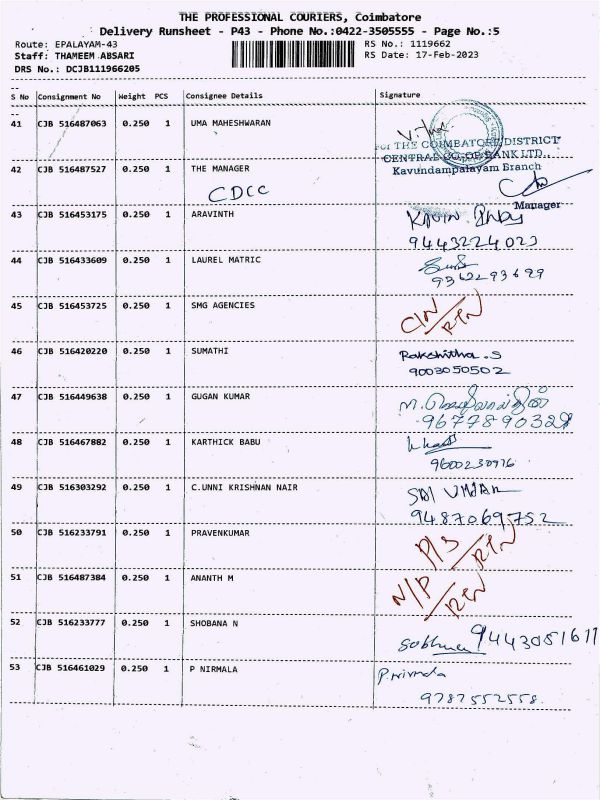 THE PROFESSIONAL COURIERS, Coimbatore
Delivery Runsheet - P43 - Phone No.:0422-3505555 - Page No.:5
Route: EPALAYAM-43 RS No.: 1119662
Staff: THAMEEM ABSARI RS Date: 17-Feb-2023
DRS No.: DCJB111966205
S No Consignment No Weight PCS Consignee Details Signature
41 CJB 516487063 0.250 1 UMA MAHESHWARAN
For THE COIMBATORE DISTRICT
CENTRAL CO.OP. BANK LTD.,
Kavundampalayam Branch
42 CJB 516487527 0.250 1 THE MANAGER
CDCC
Manager
43 CJB 516453175 0.250 1 ARAVINTH
9443224023
44 CJB 516433609 0.250 1 LAUREL MATRIC
9362293699
45 CJB 516453725 0.250 1 SMG AGENCIES
C/N/RTN
46 CJB 516420220 0.250 1 SUMATHI Rakshitha.S
9003050502
47 CJB 516449638 0.250 1 GUGAN KUMAR
9677890328
48 CJB 516467882 0.250 1 KARTHICK BABU
9600230976
49 CJB 516303292 0.250 1 C.UNNI KRISHNAN NAIR
9487069752
50 CJB 516233791 0.250 1 PRAVENKUMAR
P/S/RTN
51 CJB 516487384 0.250 1 ANANTH M
N/P/RTN
52 CJB 516233777 0.250 1 SHOBANA N
9443051611
53 CJB 516461029 0.250 1 P NIRMALA P.nirmala
9787552558.